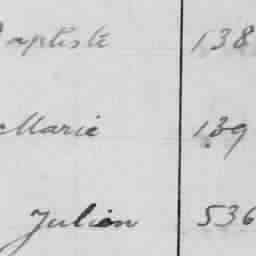 Baptiste 138
Marie 139
Julien 536